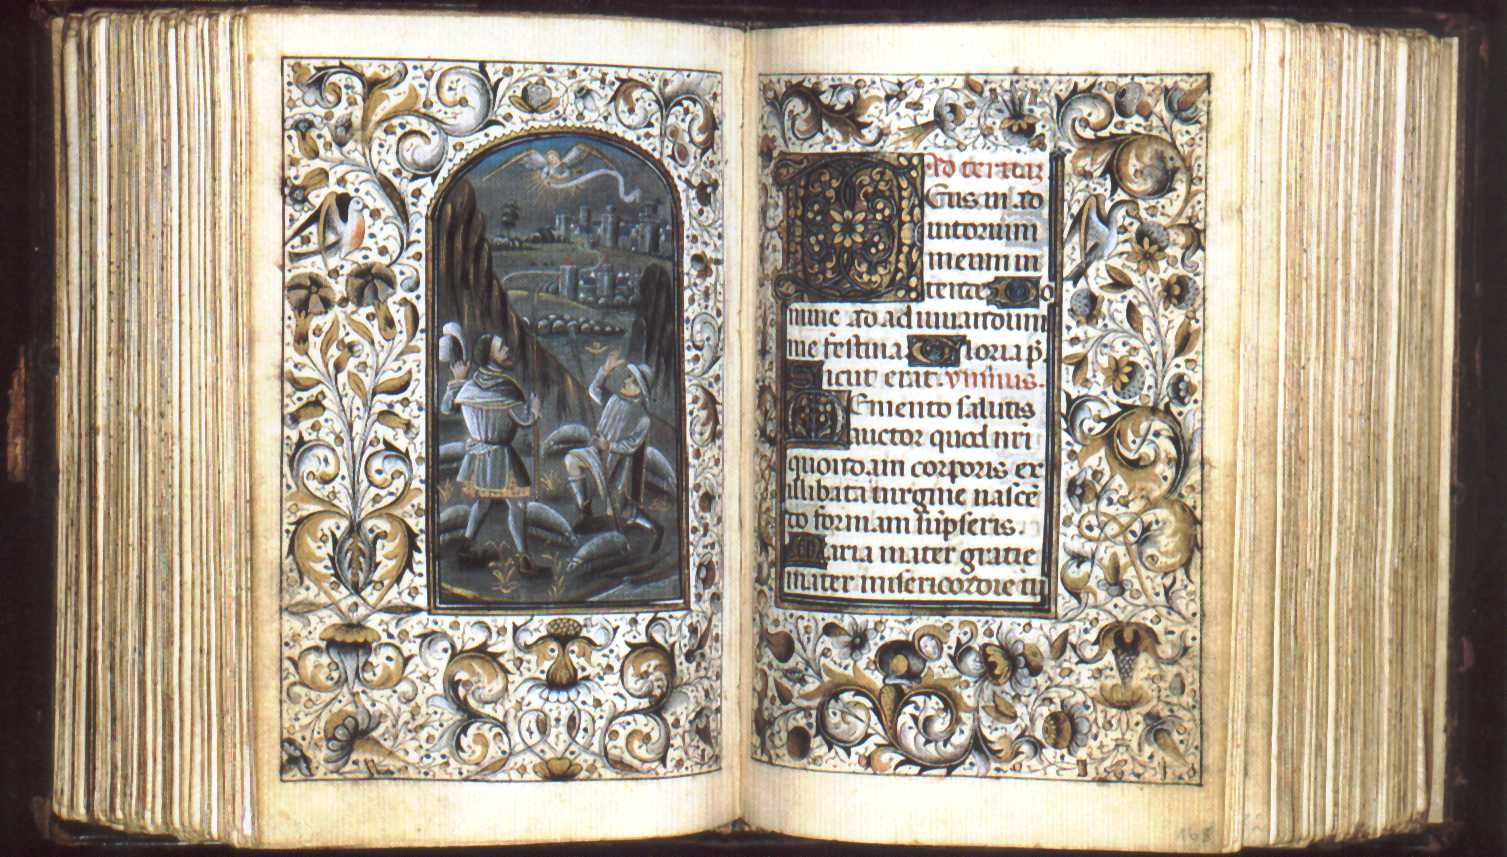 Ad terciaz
Eus in ad
iutorium
meum in
tende Do
mine ad adiuuandum
me festina Gloria p̄.
Sicut erat. ymnus.
Memento salutis
auctor quod nr̄i
quondam corporis ex
illibata uirgine nasce
do formam sūpseris.
Maria mater gratie
mater misericordie tu
168